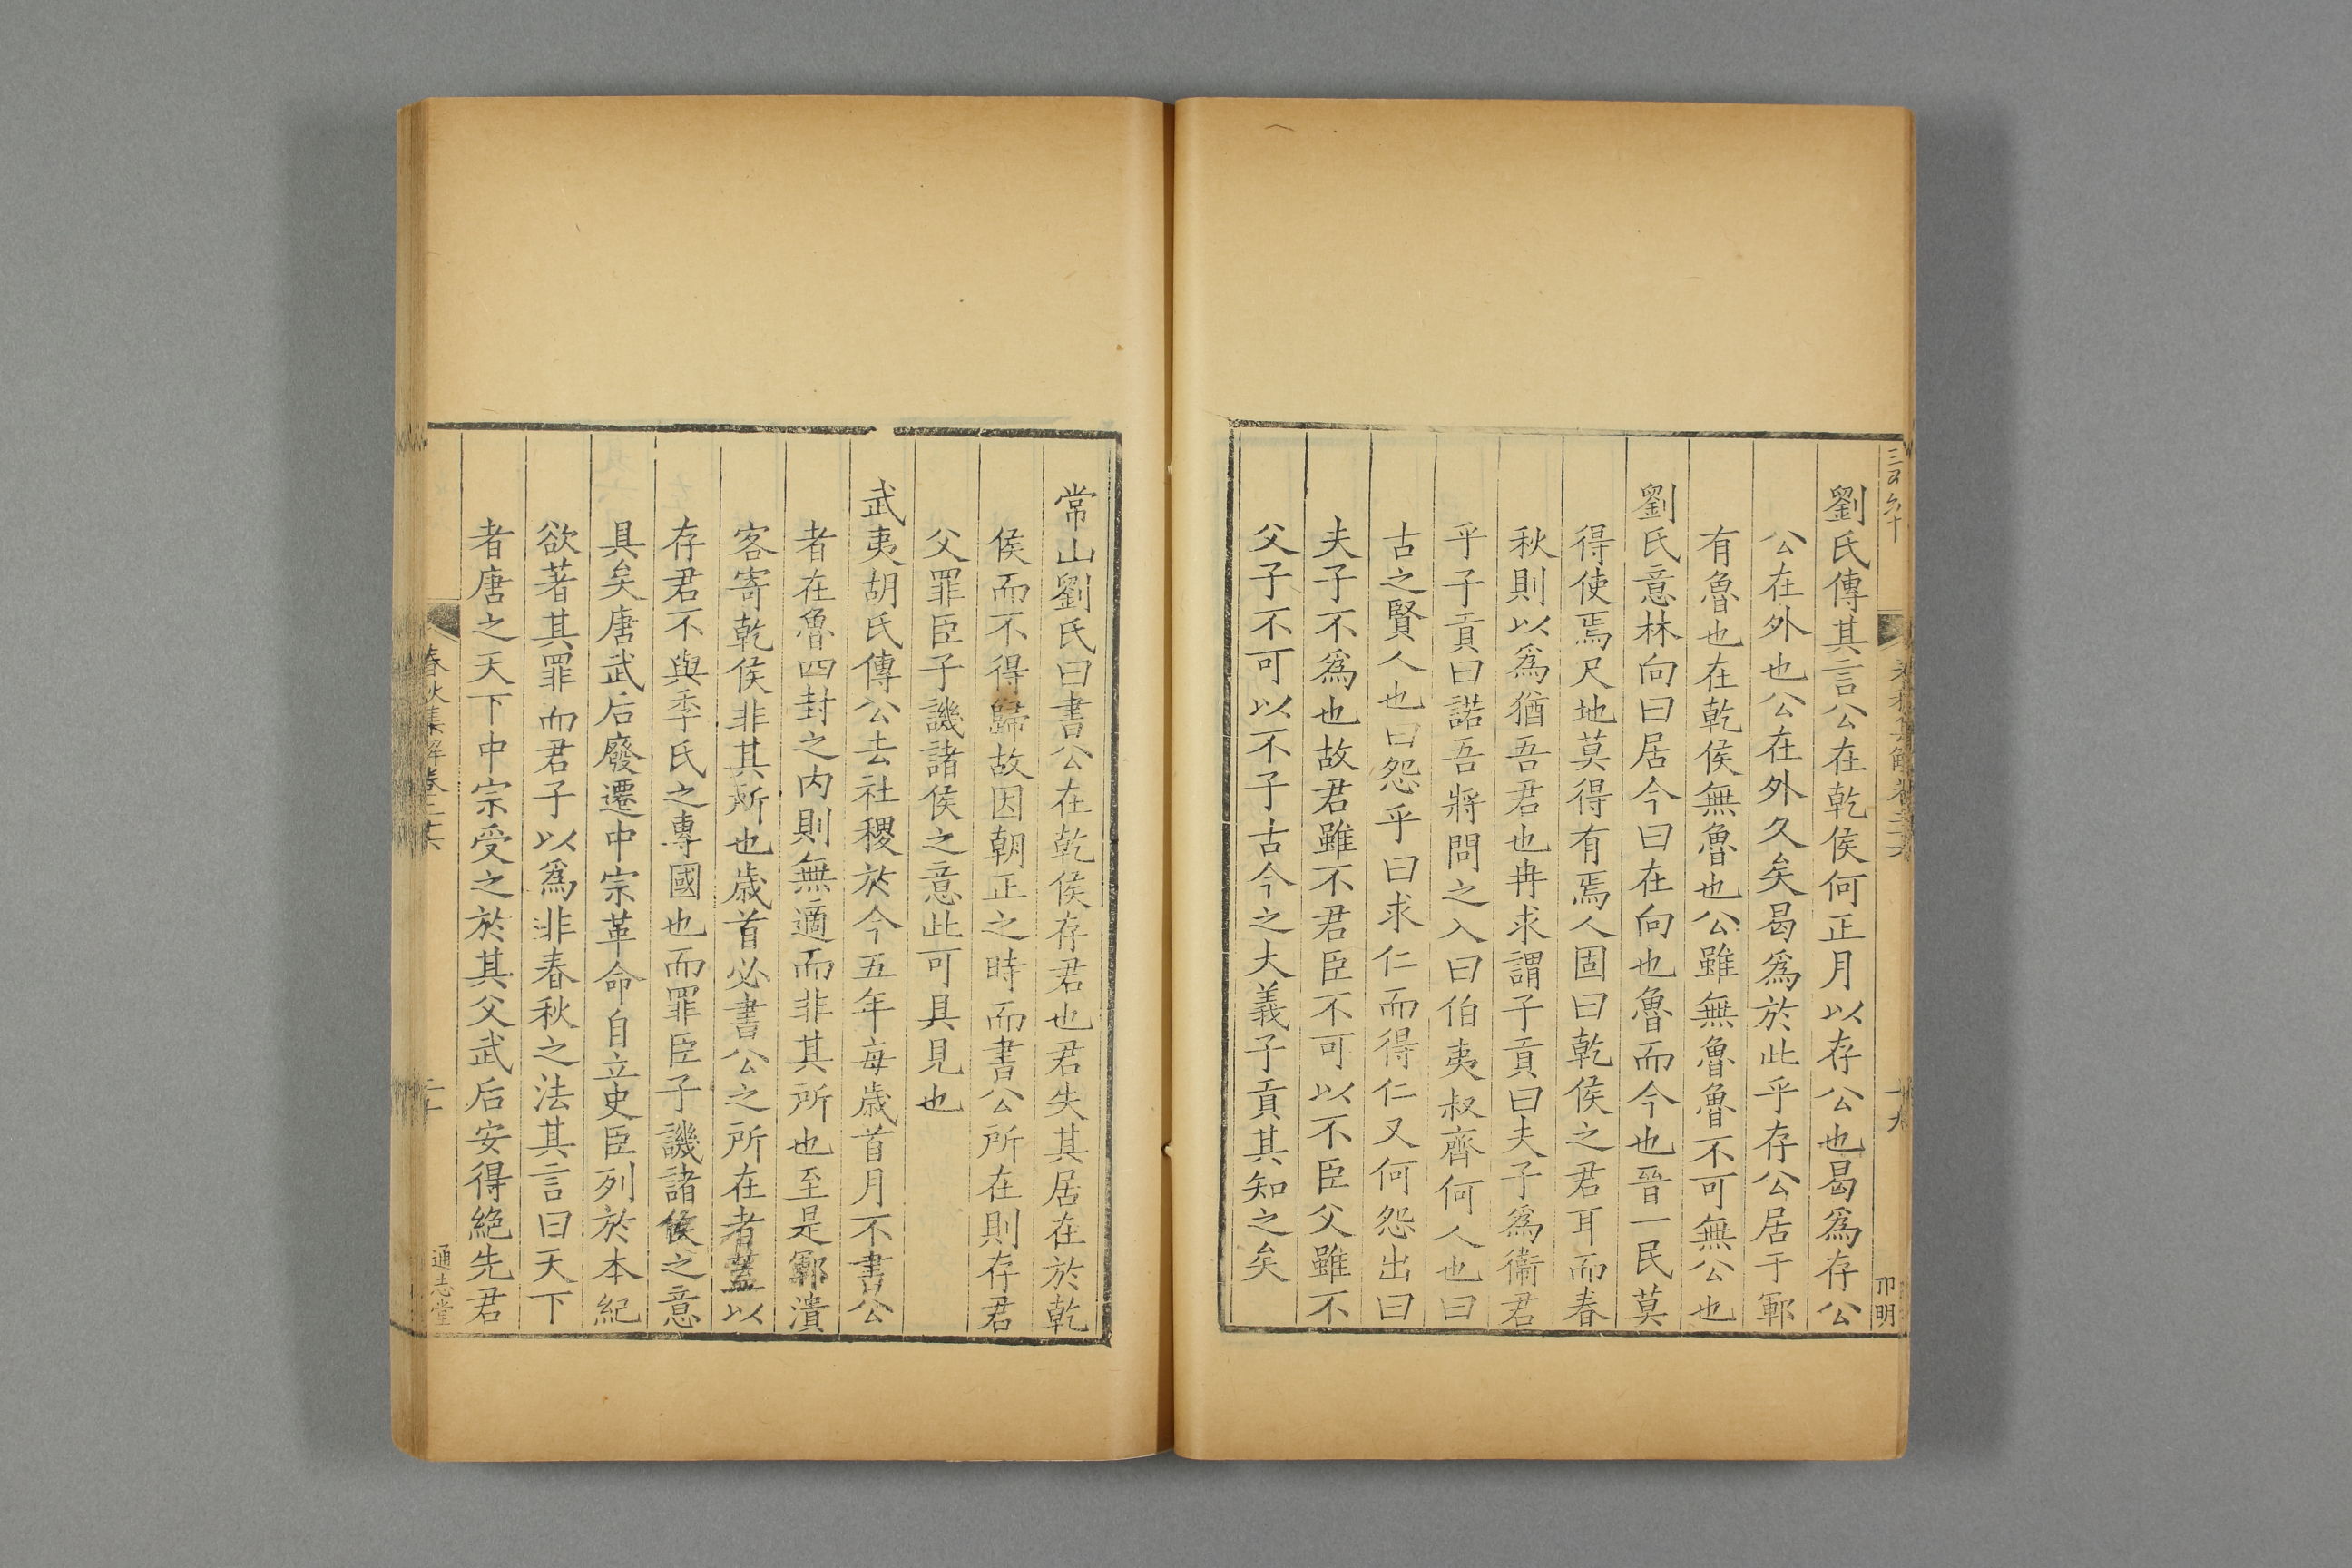 劉氏傳其言公在乾侯何正月以存公也曷爲存公
公在外也公在外久矣曷爲於此乎存公居于鄆
有魯也在乾侯無魯也公雖無魯魯不可無公也
劉氏意林向曰居今曰在向也魯而今也晉一民莫
得使焉尺地莫得有焉人固曰乾侯之君耳而春
秋則以爲猶吾君也冉求謂子貢曰夫子爲衞君
乎子貢曰諾吾將問之入曰伯夷叔齊何人也曰
古之賢人也曰怨乎曰求仁而得仁又何怨出曰
夫子不爲也故君雖不君臣不可以不臣父雖不
父子不可以不子古今之大義子貢其知之矣
常山劉氏曰書公在乾侯存君也君失其居在於乾
侯而不得歸故因朝正之時而書公所在則存君
父罪臣子譏諸侯之意此可具見也
武夷胡氏傳公去社稷於今五年每歲首月不書公
者在魯四封之内則無適而非其所也至是鄆潰
客寄乾侯非其所也歲首必書公之所在者蓋以
存君不與季氏之專國也而罪臣子譏諸侯之意
具矣唐武后廢遷中宗革命自立史臣列於本紀
欲著其罪而君子以爲非春秋之法其言曰天下
者唐之天下中宗受之於其父武后安得絶先君
春秋集解卷二十六
二十
通志堂